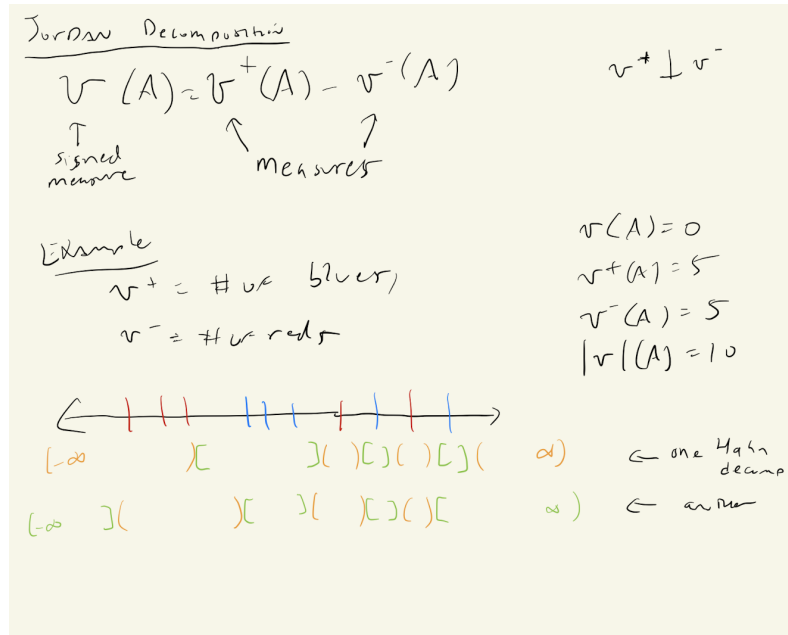 Jordan Decomposition
v(A) = v⁺(A) - v⁻(A)
v⁺ ⊥ v⁻
↑
signed
measure
measures
Example
v⁺ = # of blues,
v⁻ = # of reds
v(A) = 0
v⁺(A) = 5
v⁻(A) = 5
|v|(A) = 10
(-∞ )[ ]( )[ ]( )[ ]( ∞) ← one Hahn
decomp
(-∞ ]( )[ ]( )[ ]( )[ ∞) ← another